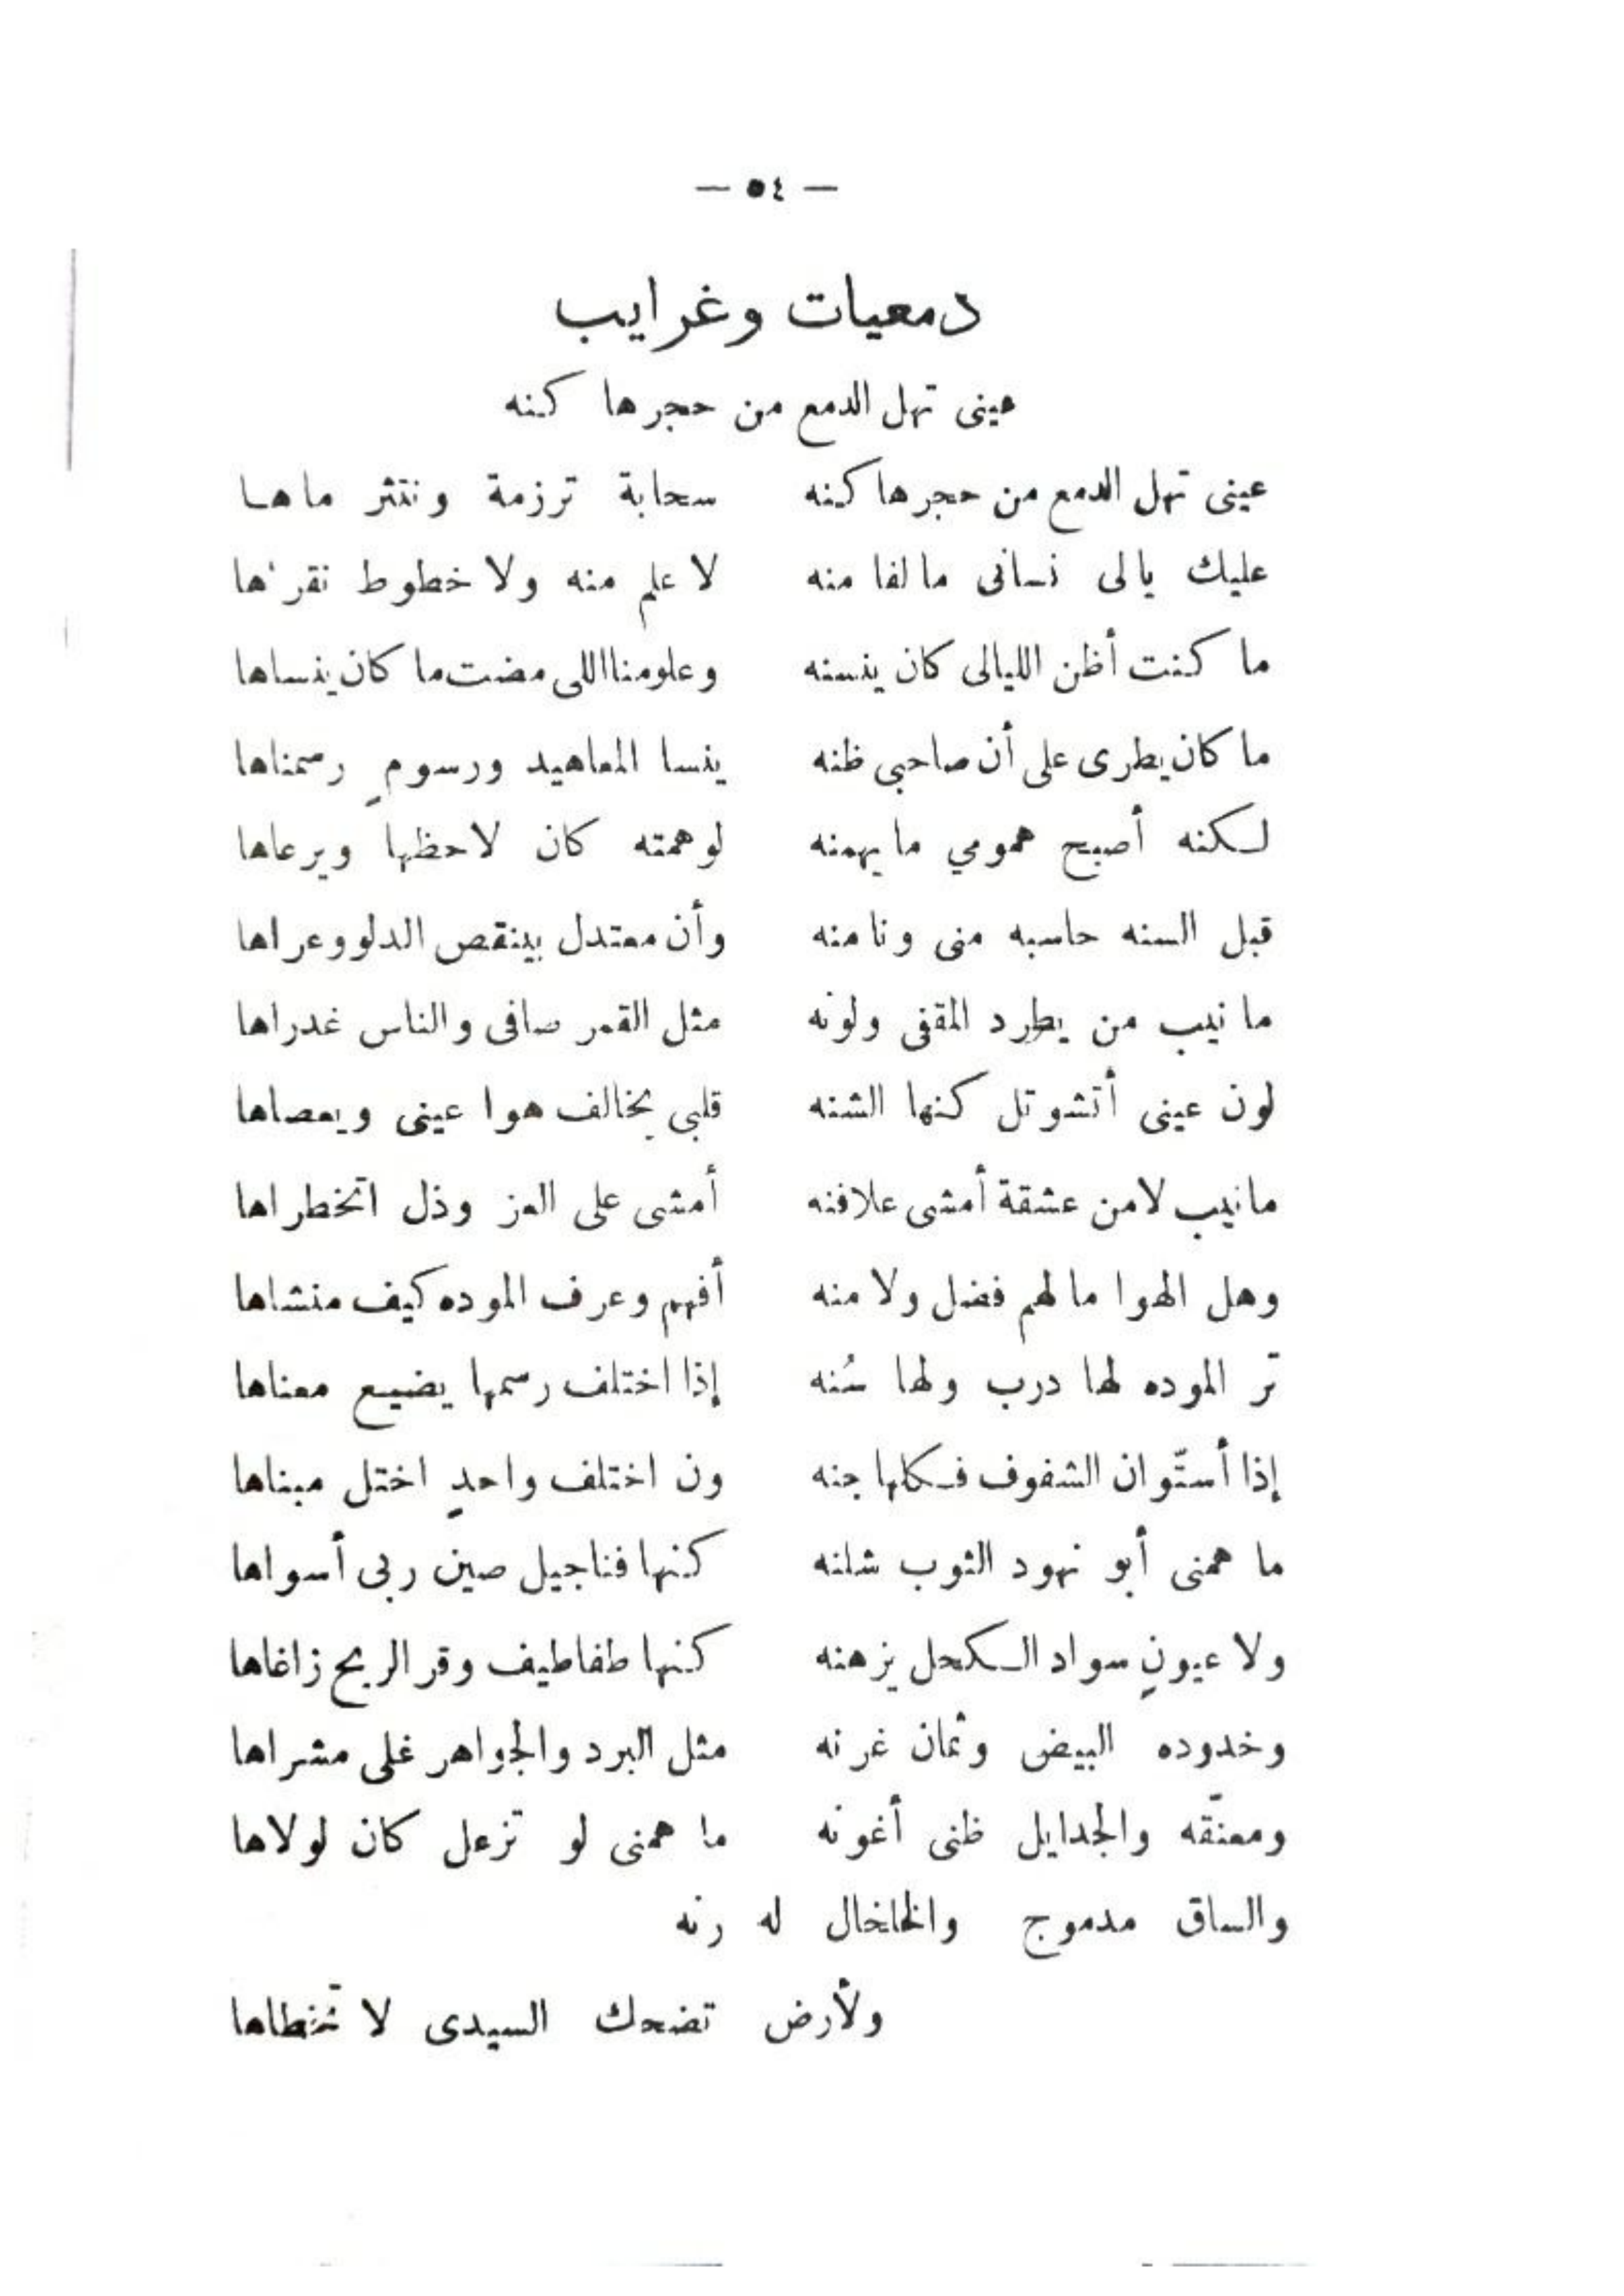 — ٥٤ —
دمعيات وغرايب
عينى تهل الدمع من حجرها كنه
عينى تهل الدمع من حجرها كنه سحابة ترزمة ونتثر ماها
عليك يالى نسانى مالفا منه لا علم منه ولا خطوط نقرٰها
ما كنت أظن الليالى كان ينسنه وعلومنا اللى مضت ما كان ينساها
ما كان يطرى على أن صاحبى ظنه ينسا المعاهيد ورسومٍ رسمناها
لكنه أصبح همومي ما يهمنه لوهمته كان لاحظها ويرعاها
قبل السنه حاسبه منى ونا منه وأن معتدل بينقص الدلو وعراها
ما نيب من يطرد المقفى ولونه مثل القمر صافى والناس غدراها
لون عينى أتشوتل كنها الشنه قلبى يخالف هوا عينى ويعصاها
مانيب لامن عشقة أمشى علافنه أمشى على العز وذل اتخطراها
وهل الهوا مالهم فضل ولا منه أفهم وعرف الموده كيف منشاها
تّر الموده لها درب ولها سُنه إذا اختلف رسمها يضيع معناها
إذا أستّوان الشفوف فكلها جنه ون اختلف واحدٍ اختل مبناها
ما همنى أبو نهود الثوب شلنه كنها فناجيل صين ربى أسواها
ولا عيونٍ سواد الكحل يزهنه كنها طفاطيف وقر الريح زاغاها
وخدوده البيض وثمان غرنه مثل البرد والجواهر غلى مشراها
ومعنّقه والجدايل ظنى أغونه ما همنى لو تزعل كان لولاها
والساق مدموج والخلخال له رنه
ولأرض تضحك السيدى لا تخطاها